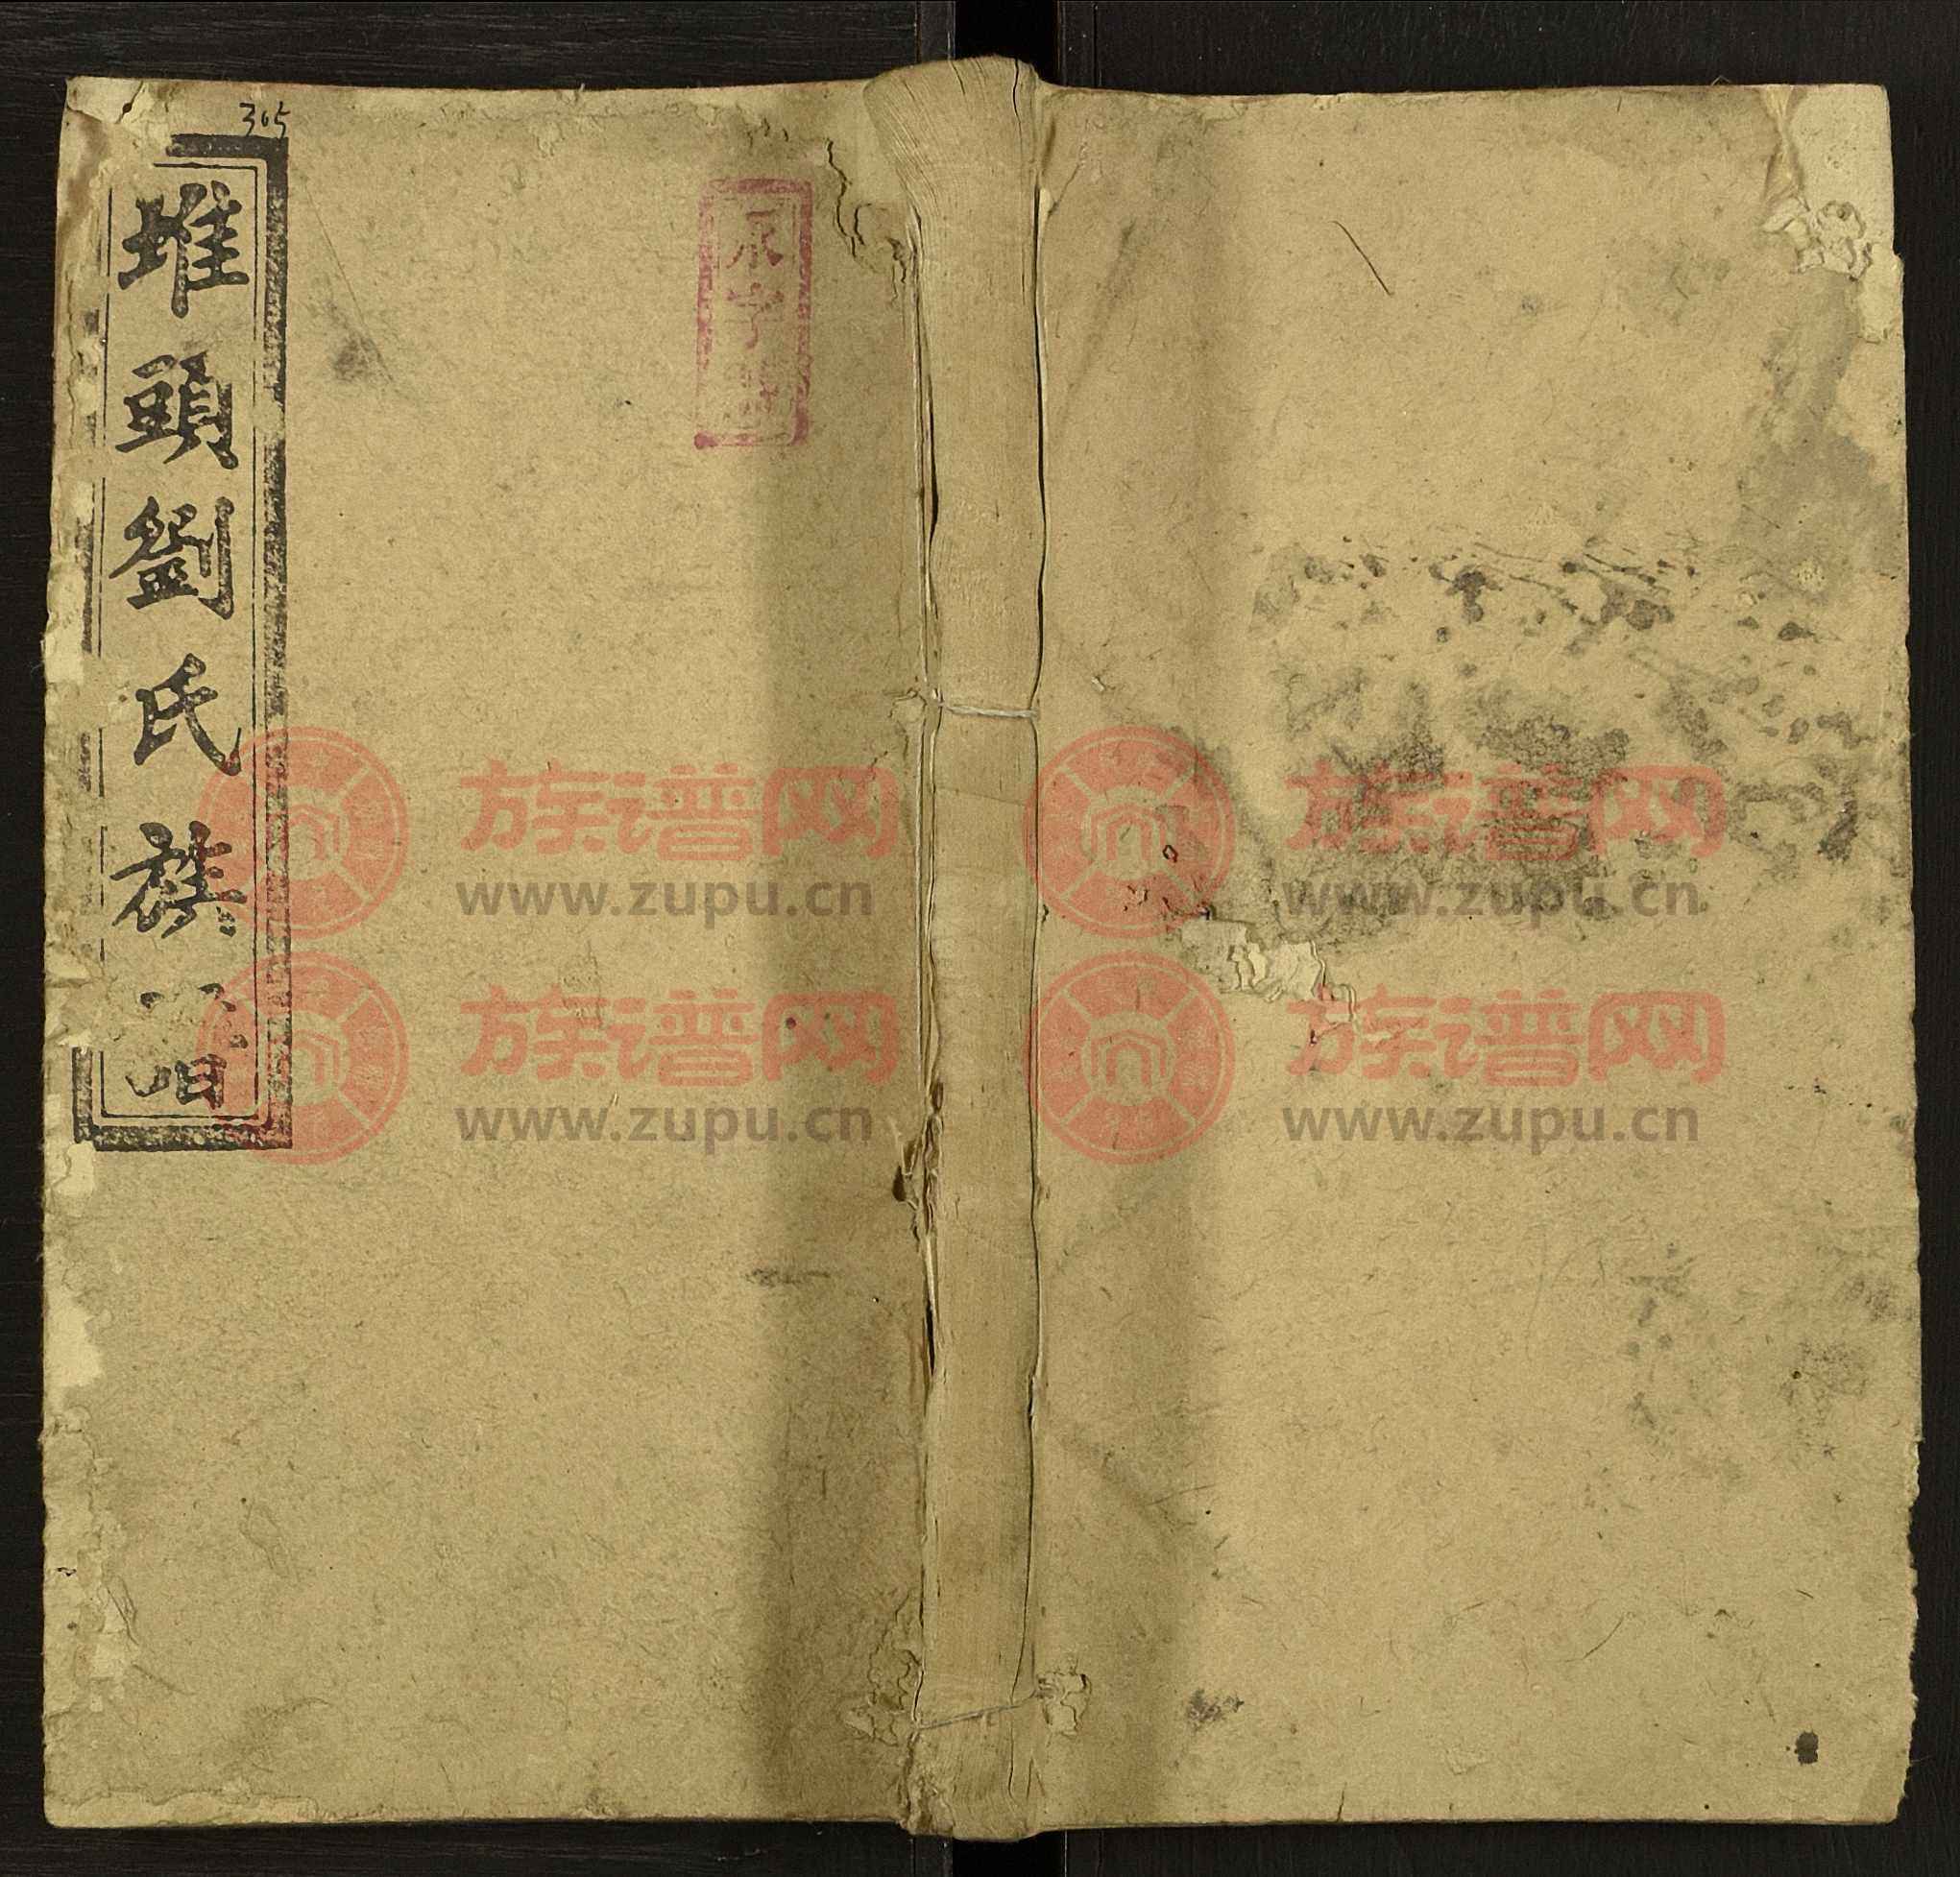 305
堆頭劉氏族譜
字
族谱网
www.zupu.cn
族谱网
www.zupu.cn
族谱网
www.zupu.cn
族谱网
www.zupu.cn